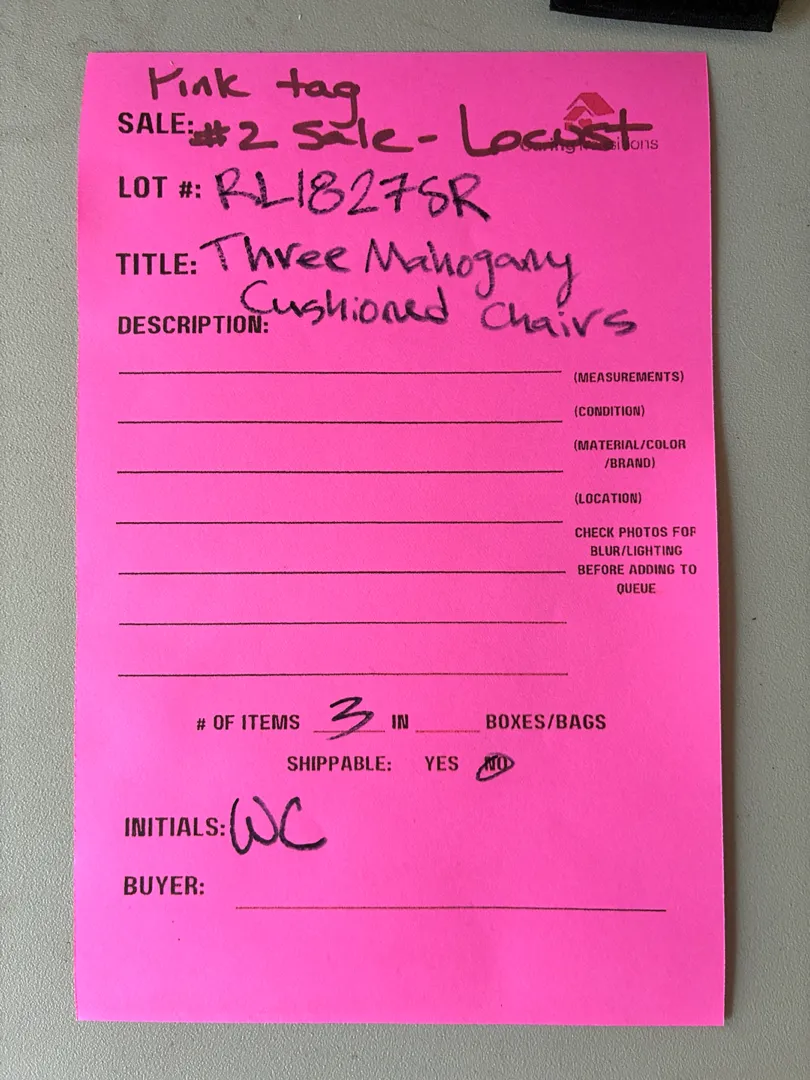 Pink tag
SALE: #2 Sale - Locust
LOT #: RL18275R
TITLE: Three Mahogany
Cushioned Chairs
DESCRIPTION:
(MEASUREMENTS)
(CONDITION)
(MATERIAL/COLOR
/BRAND)
(LOCATION)
CHECK PHOTOS FOR
BLUR/LIGHTING
BEFORE ADDING TO
QUEUE
# OF ITEMS 3 IN BOXES/BAGS
SHIPPABLE: YES NO
INITIALS: WC
BUYER: